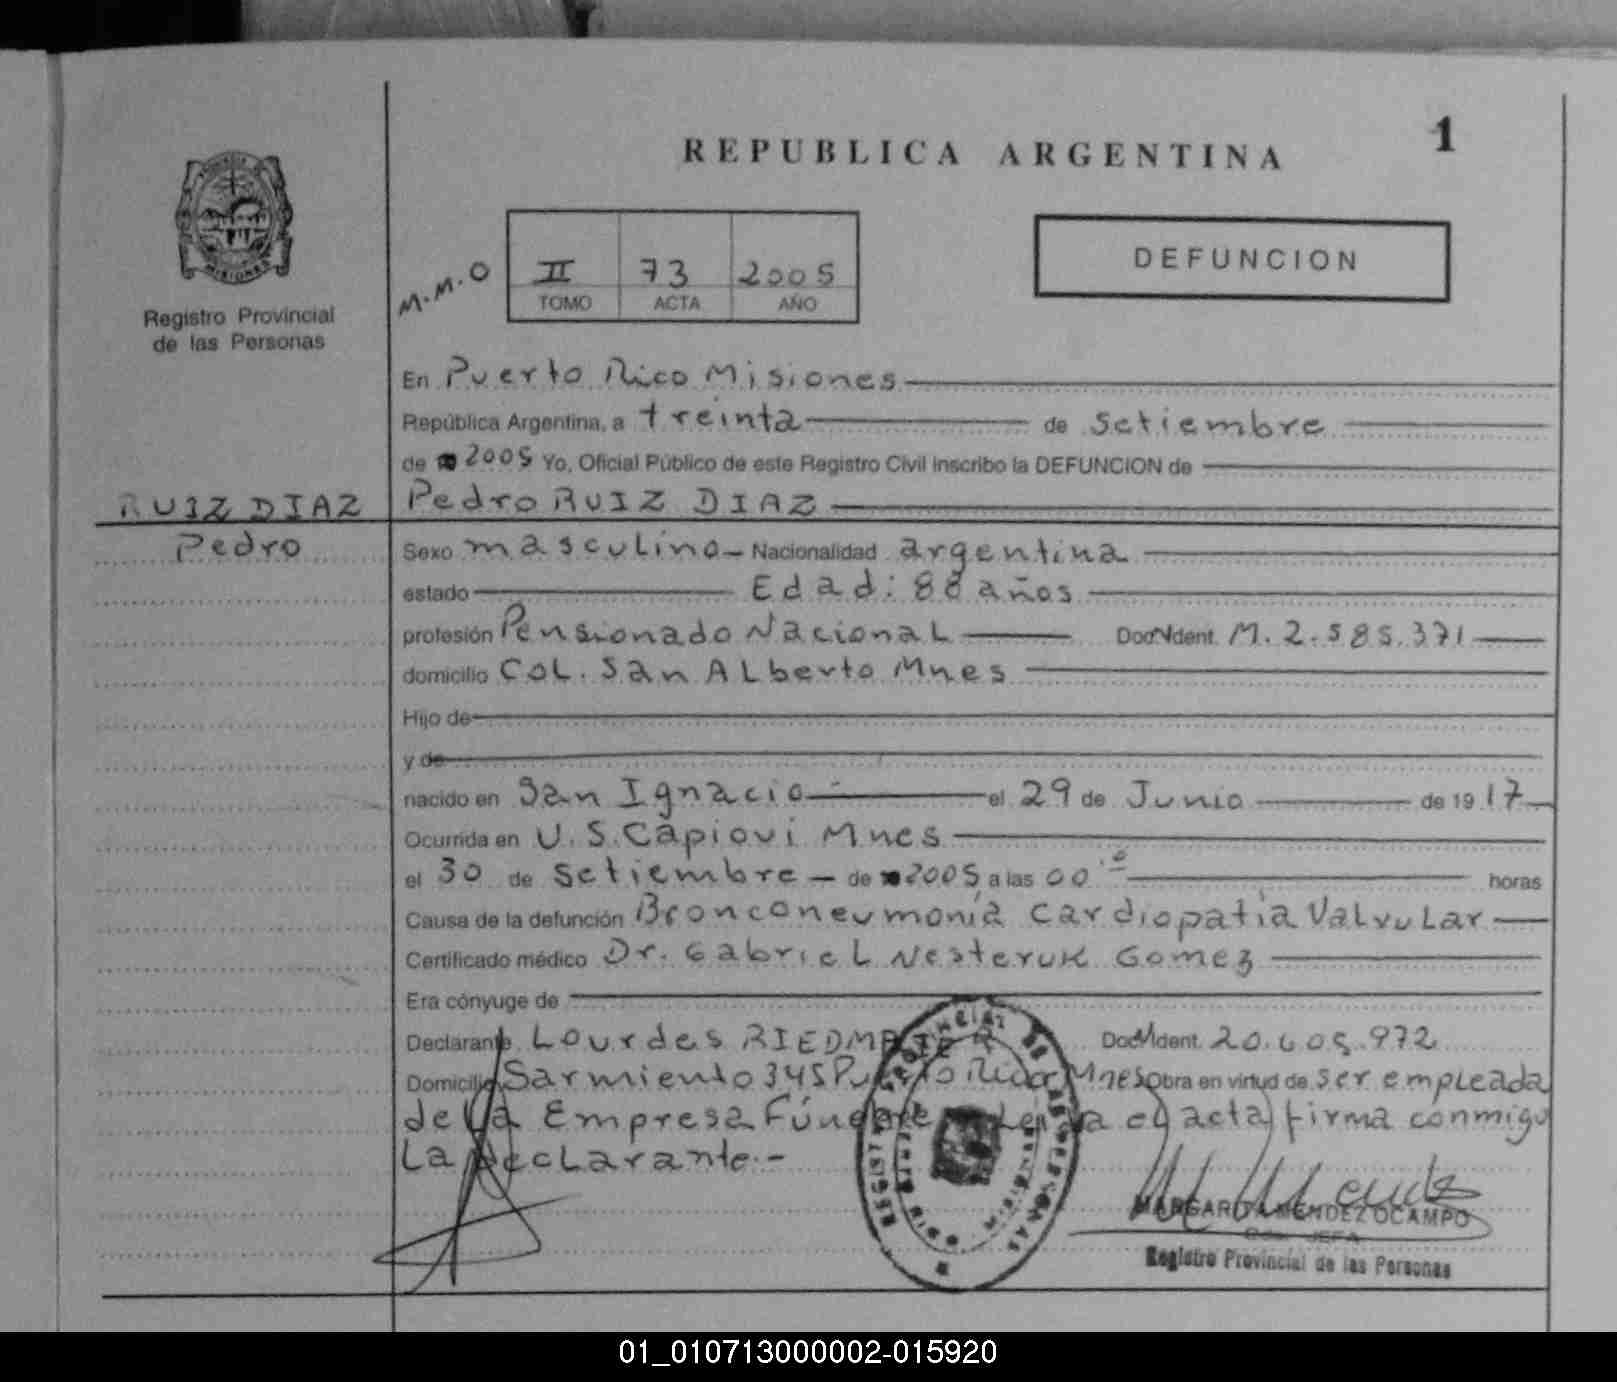 REPUBLICA ARGENTINA
1
MISIONES
Registro Provincial
de las Personas
M.M.O
II 73 2005
TOMO ACTA AÑO
DEFUNCION
En Puerto Rico Misiones
República Argentina, a treinta de setiembre
de 2005 Yo, Oficial Público de este Registro Civil inscribo la DEFUNCION de
RUIZ DIAZ
Pedro
Pedro RUIZ DIAZ
Sexo masculino - Nacionalidad argentina
estado Edad: 88 años
profesión Pensionado Nacional Doc Ident. M. 2.585.371
domicilio Col. San Alberto Mnes
Hijo de
y de
nacido en San Ignacio el 29 de Junio de 1917
Ocurrida en U.S. Capioví Mnes
el 30 de setiembre - de 2005 a las 00 horas
Causa de la defunción Bronconeumonía Cardiopatía Valvular
Certificado médico Dr. Gabriel Nesteruk Gomez
Era cónyuge de
Declarante Lourdes RIEDMAIER Doc Ident. 20.605.972
Domicilio Sarmiento 345 Puerto Rico Mnes Obra en virtud de ser empleada
de la Empresa Fúnebre Leída el acta firma conmigo
la declarante.-
REGISTRO PROVINCIAL DE LAS PERSONAS
MARGARITA MENDEZ OCAMPO
JEFA
Registro Provincial de las Personas
01_010713000002-015920